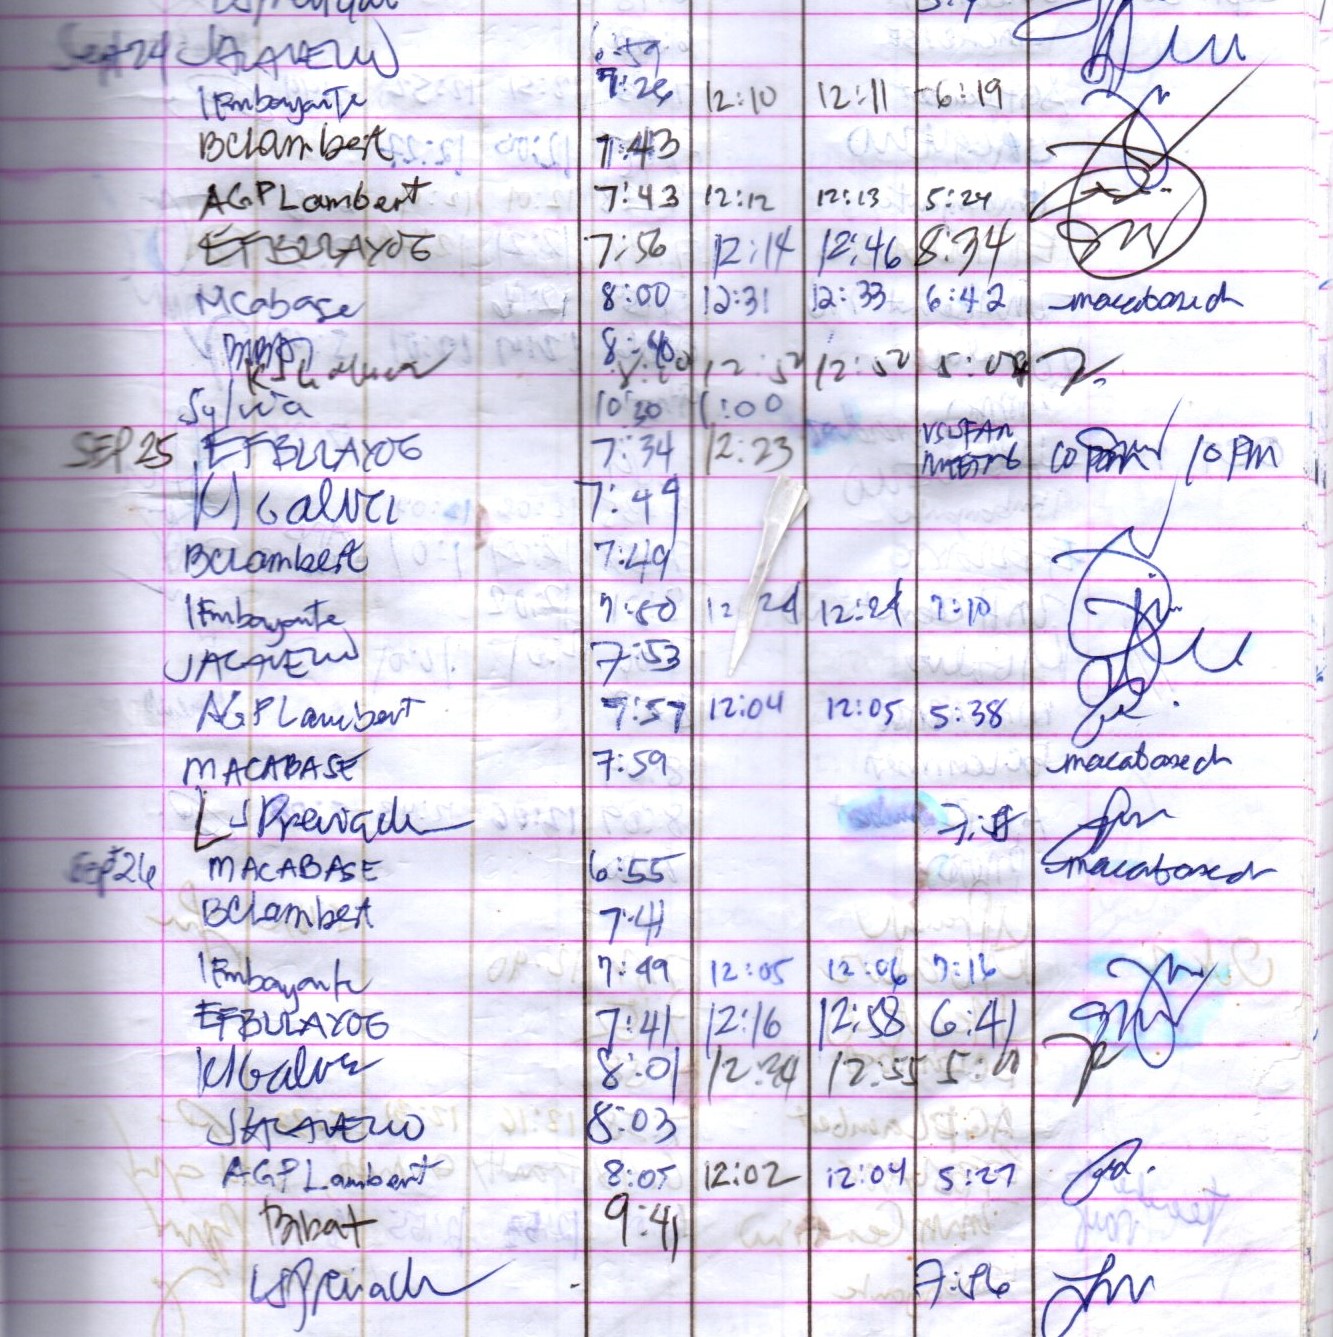 Sept 24 JACAVERO 6:59
IEmbayante 7:26 12:10 12:11 6:19
BClambert 7:43
AGPLambert 7:43 12:12 12:13 5:24
EFBULAYOG 7:56 12:14 12:46 8:34
MCabase 8:00 12:31 12:33 6:42 macabasech
8:40 12:52 12:52
Sylvia 10:20 1:00
SEP 25 EFBULAYOG 7:34 12:23 MEETING 10 PM
KJGalvez 7:49
BClambert 7:49
IEmbayante 7:50 12:24 12:24 7:10
JACAVERO 7:53
AGPLambert 7:57 12:04 12:05 5:38
MACABASE 7:59 macabasech
Sept 26 MACABASE 6:55 macabasech
BClambert 7:41
IEmbayante 7:49 12:05 12:06 7:16
EFBULAYOG 7:41 12:16 12:58 6:41
KJGalvez 8:01 12:24 12:55
JACAVERO 8:03
AGPLambert 8:05 12:02 12:04 5:27
Bibat 9:41
7:56